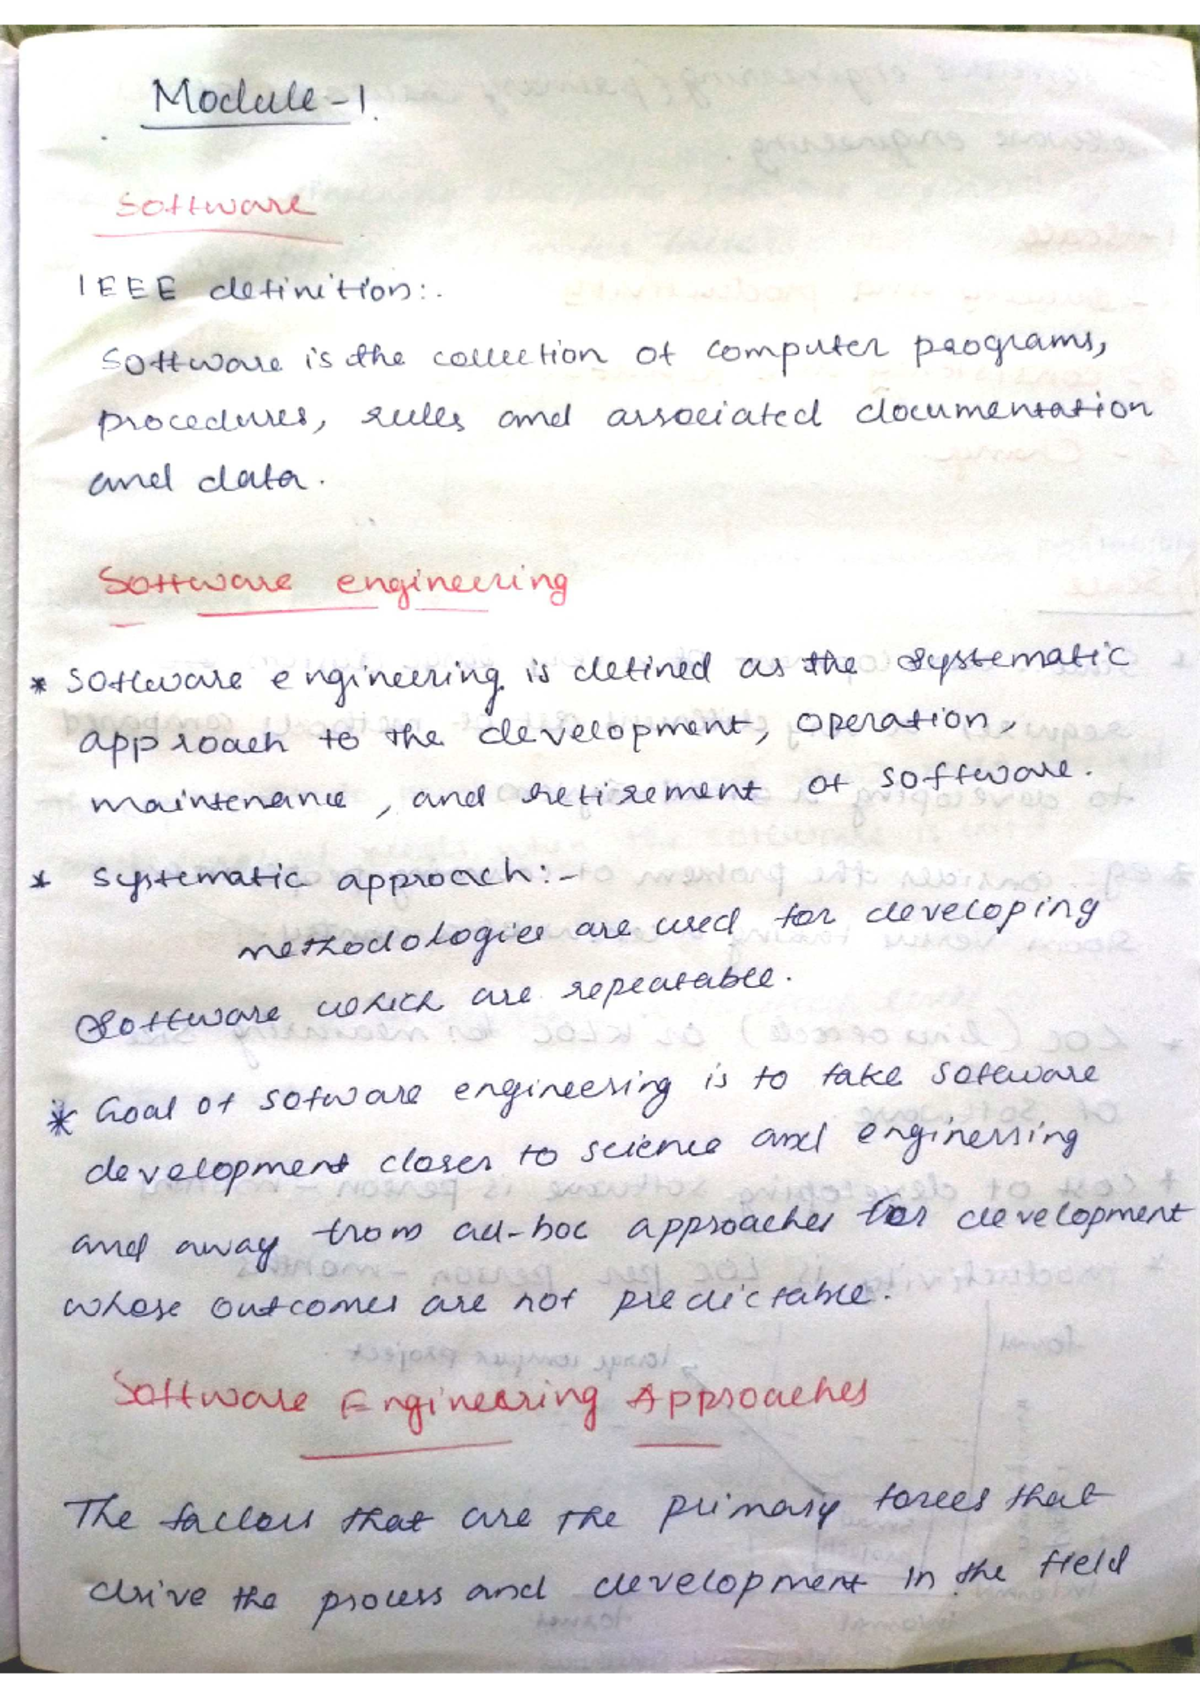 Module-1.
Software
IEEE definition:.
Software is the collection of computer programs,
procedures, rules and associated documentation
and data.
Software engineering
* Software engineering is defined as the systematic
approach to the development, operation,
maintenance, and retirement of software.
* Systematic approach:-
methodologies are used for developing
software which are repeatable.
* Goal of sofware engineering is to take software
development closer to science and engineering
and away from ad-hoc approaches for development
whose outcomes are not predictable.
Software Engineering Approaches
The factors that are the primary forces that
drive the process and development in the field